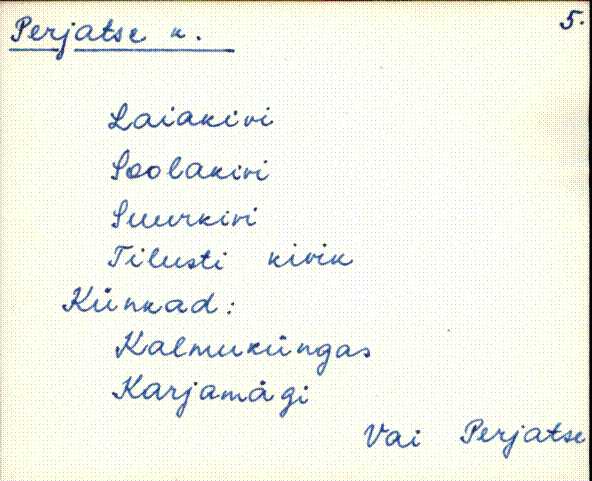 Perjatse k. 5.
Laiakivi
Soolakivi
Suurkivi
Tilusti kivik
Künkad:
Kalmuküngas
Karjamägi
Vai Perjatse